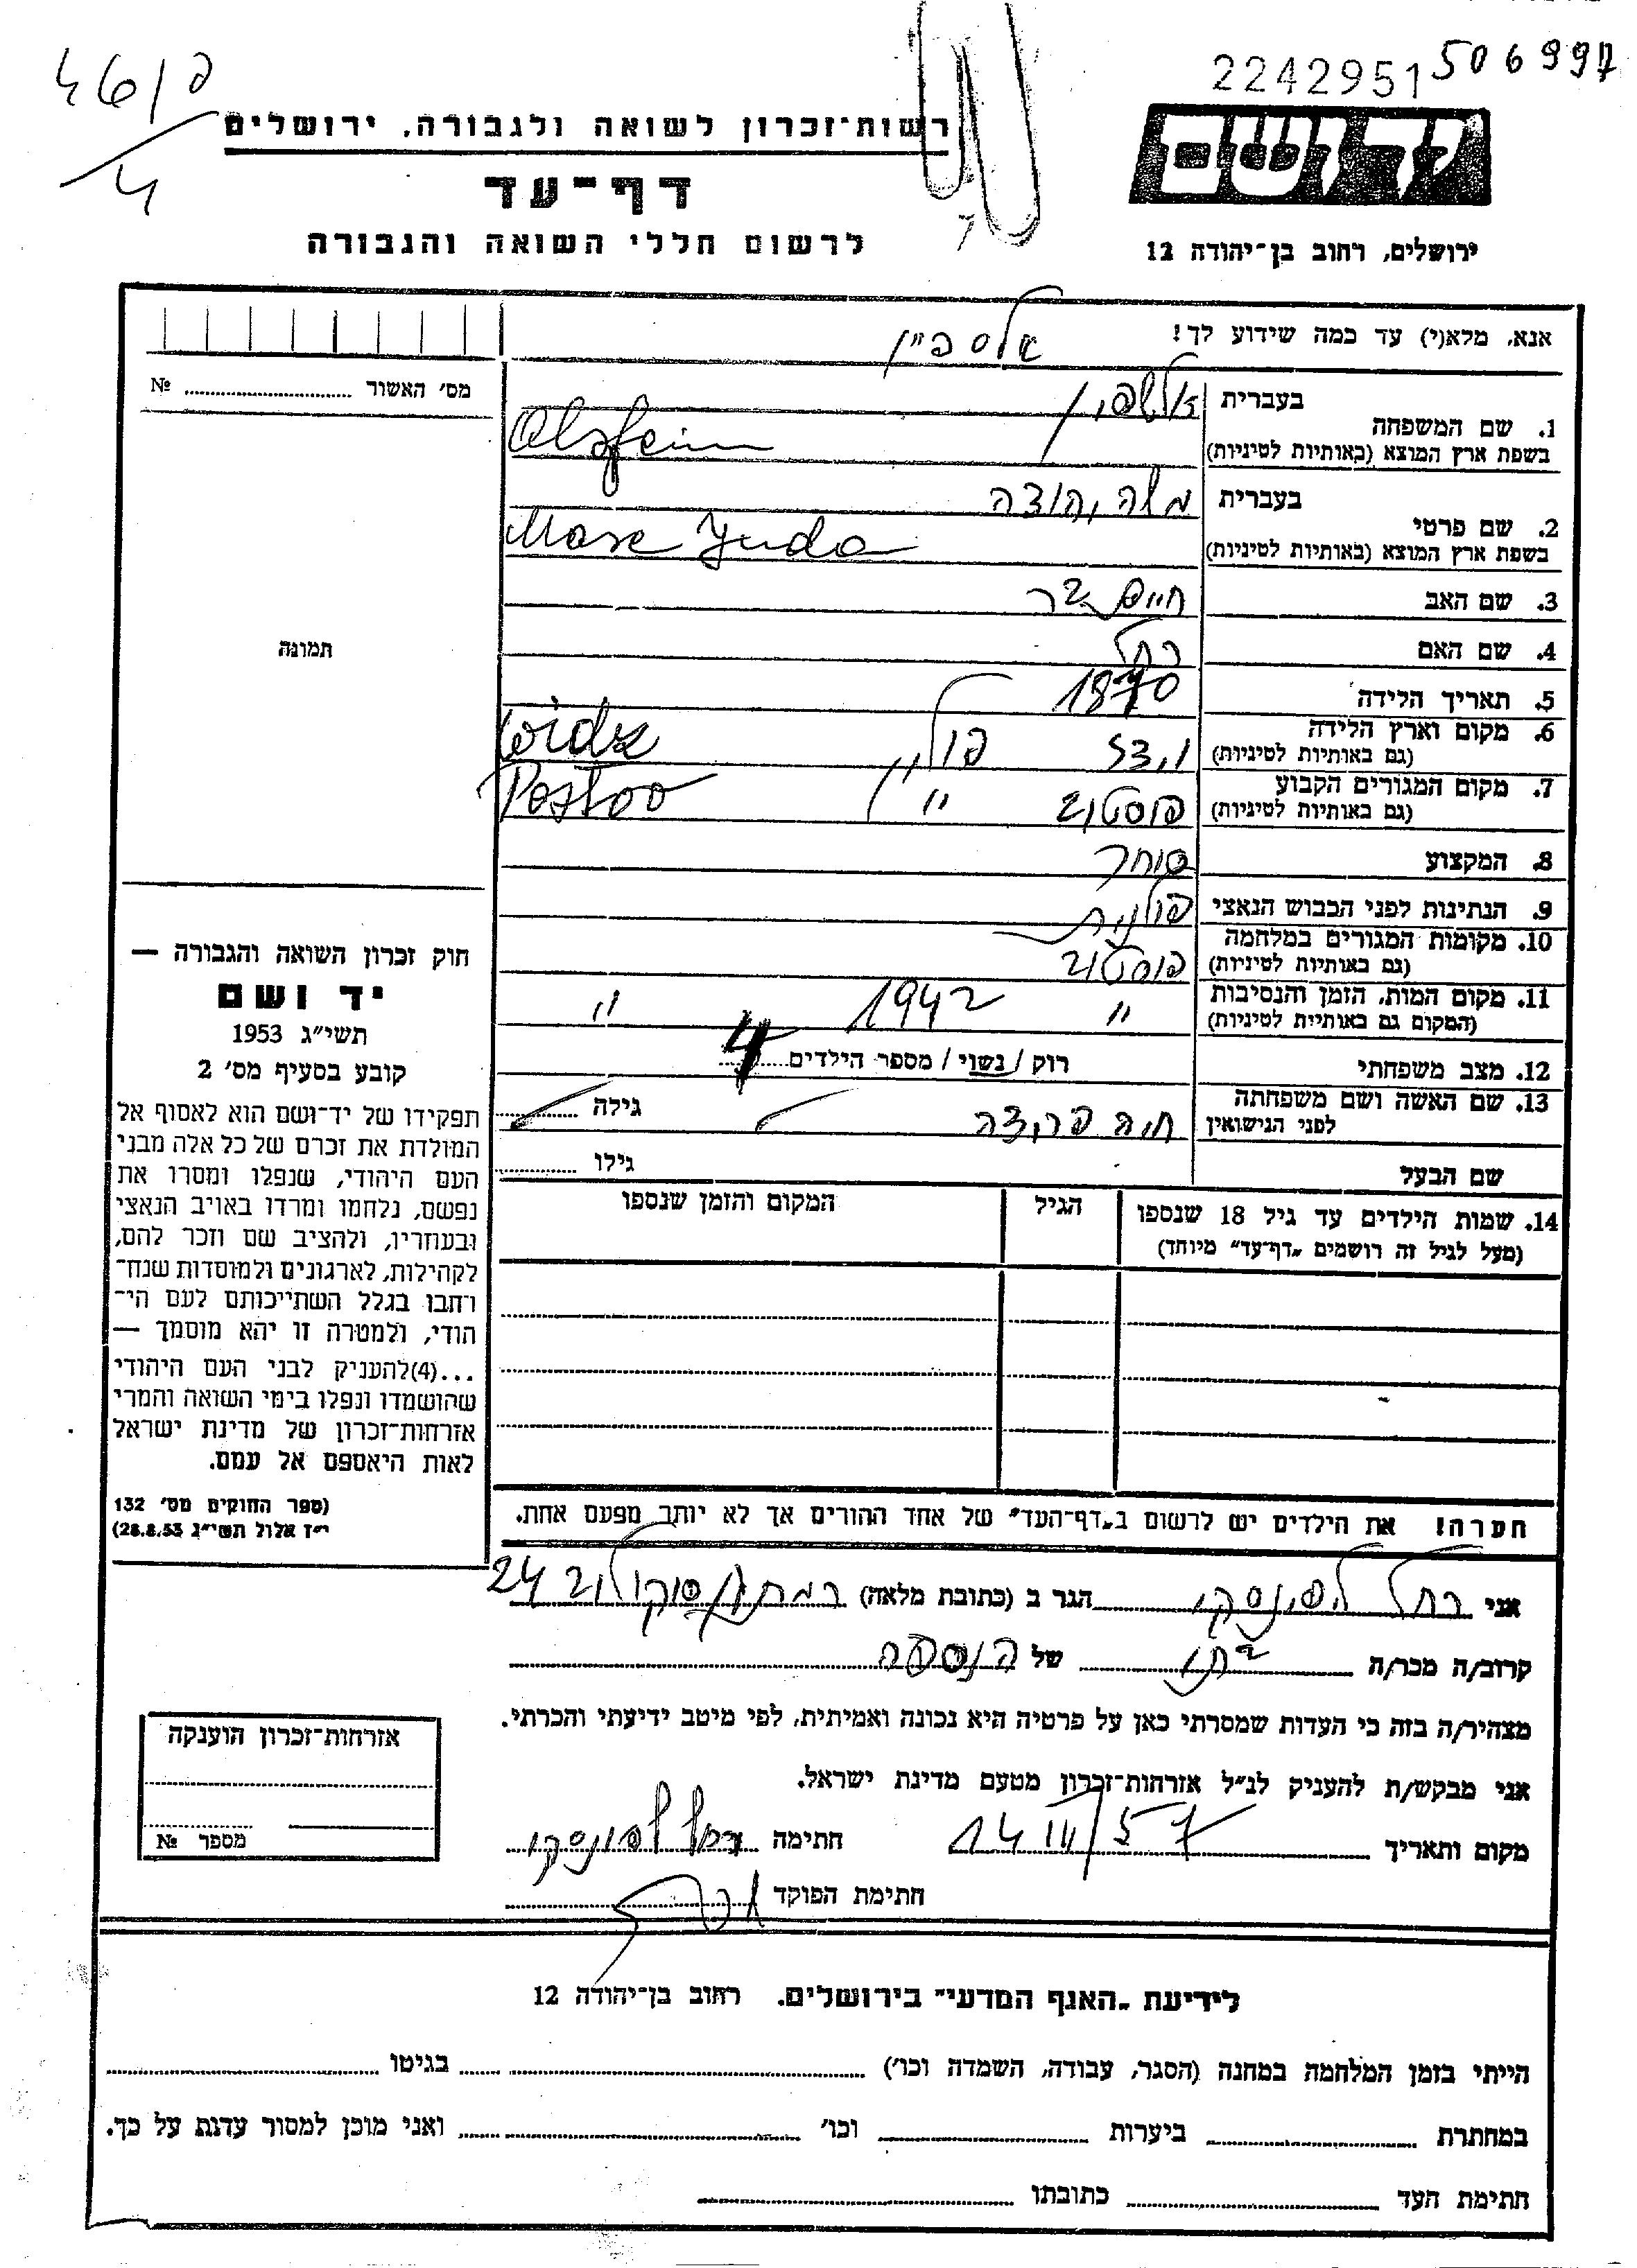 פ/46
4
2242951 506997
רשות־זכרון לשואה ולגבורה, ירושלים
יד ושם
דף־עד
לרשום חללי השואה והגבורה
ירושלים, רחוב בן־יהודה 12
אנא, מלא(י) עד כמה שידוע לך!
אלספיין
מס׳ האשור ........ №
בעברית אלשפיין
1. שם המשפחה
בשפת ארץ המוצא (באותיות לטיניות) Olszfein
בעברית משה יהודה
2. שם פרטי
בשפת ארץ המוצא (באותיות לטיניות) Mose Juda
3. שם האב חיים בר
4. שם האם רחל
תמונה
5. תאריך הלידה 1870
6. מקום וארץ הלידה וידז פולין Widze
(גם באותיות לטיניות)
7. מקום המגורים הקבוע פוסטוב " Postoo
(גם באותיות לטיניות)
8. המקצוע סוחר
9. הנתינות לפני הכבוש הנאצי פולנית
10. מקומות המגורים במלחמה פוסטוב
(גם באותיות לטיניות)
11. מקום המות, הזמן והנסיבות " 1942 "
(המקום גם באותיות לטיניות)
12. מצב משפחתי רוק / נשוי / מספר הילדים 4
13. שם האשה ושם משפחתה חיה פרידה גילה
לפני הנישואין
שם הבעל גילו
14. שמות הילדים עד גיל 18 שנספו הגיל המקום והזמן שנספו
(מעל לגיל זה רושמים „דף־עד" מיוחד)
חוק זכרון השואה והגבורה —
יד ושם
תשי״ג 1953
קובע בסעיף מס׳ 2
תפקידו של יד־ושם הוא לאסוף אל
המולדת את זכרם של כל אלה מבני
העם היהודי, שנפלו ומסרו את
נפשם, נלחמו ומרדו באויב הנאצי
ובעוזריו, ולהציב שם וזכר להם,
לקהילות, לארגונים ולמוסדות שנח־
רחבו בגלל השתייכותם לעם הי־
הודי, ולמטרה זו יהא מוסמך —
...(4)להעניק לבני העם היהודי
שהושמדו ונפלו בימי השואה והמרי
אזרחות־זכרון של מדינת ישראל
לאות היאספם אל עמם.
(ספר החוקים מס׳ 132
י״ז אלול תשי״ג 28.8.53)
הערה! את הילדים יש לרשום ב„דף־העד" של אחד ההורים אך לא יותר מפעם אחת.
אני רחל לפונסקי הגר ב (כתובת מלאה) רמת גן סוקולוב 24
קרוב/ה מכר/ה בתו של הנספה
מצהיר/ה בזה כי העדות שמסרתי כאן על פרטיה היא נכונה ואמיתית, לפי מיטב ידיעתי והכרתי.
אני מבקש/ת להעניק לנ״ל אזרחות־זכרון מטעם מדינת ישראל.
מקום ותאריך 14 III/57 חתימה רחל לפונסקי
חתימת הפוקד
אזרחות־זכרון הוענקה
מספר №
לידיעת „האגף המדעי" בירושלים. רחוב בן־יהודה 12
הייתי בזמן המלחמה במחנה (הסגר, עבודה, השמדה וכו׳) בגיטו
במחתרת ביערות וכו׳ ואני מוכן למסור עדות על כך.
חתימת העד כתובתו